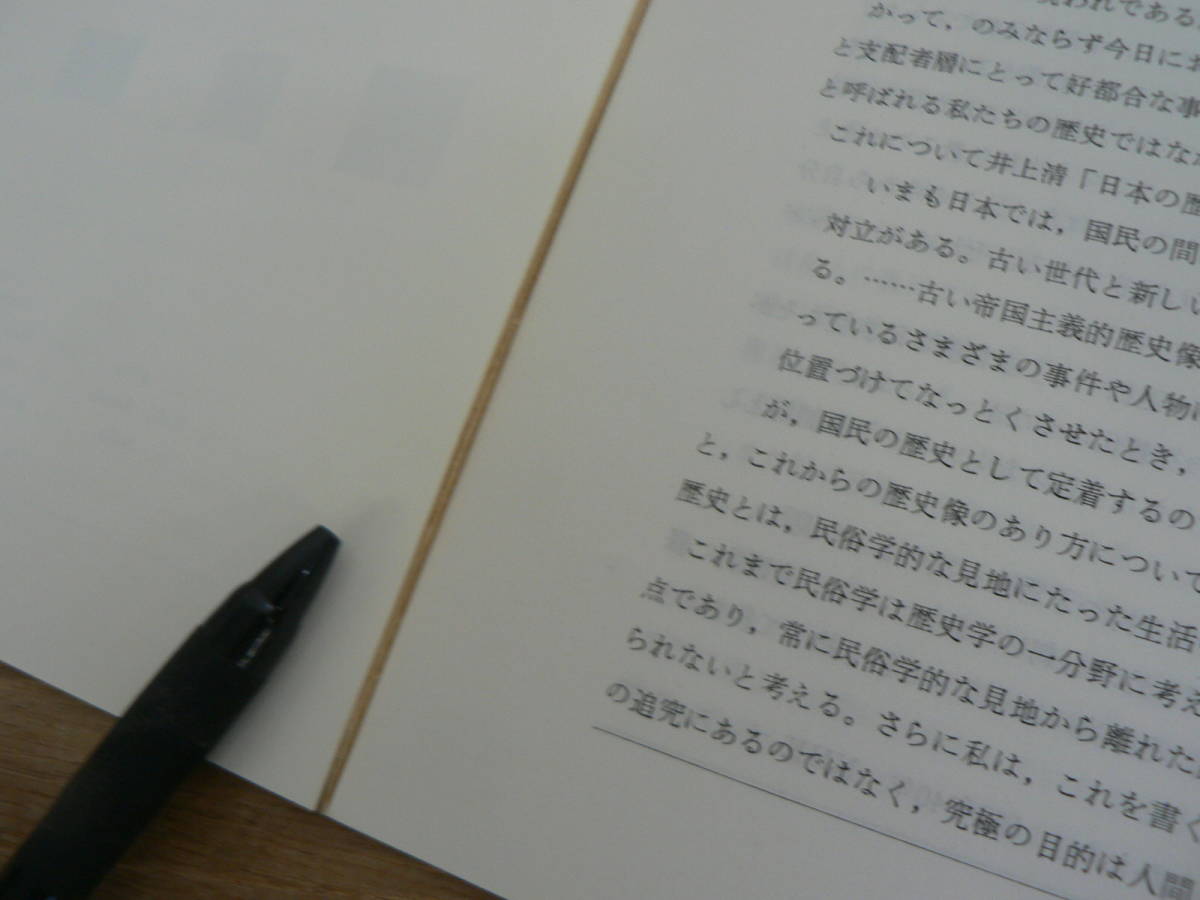 われである
かって，のみならず今日に
と支配者層にとって好都合な事
と呼ばれる私たちの歴史ではな
これについて井上清「日本の歴
いまも日本では，国民の間
対立がある。古い世代と新し
る。……古い帝国主義的歴史像
っているさまざまの事件や人物
位置づけてなっとくさせたとき，
が，国民の歴史として定着するの
と，これからの歴史像のあり方について
歴史とは，民俗学的な見地にたった生活
これまで民俗学は歴史学の一分野に考え
点であり，常に民俗学的な見地から離れた
られないと考える。さらに私は，これを書く
の追究にあるのではなく，究極の目的は人間